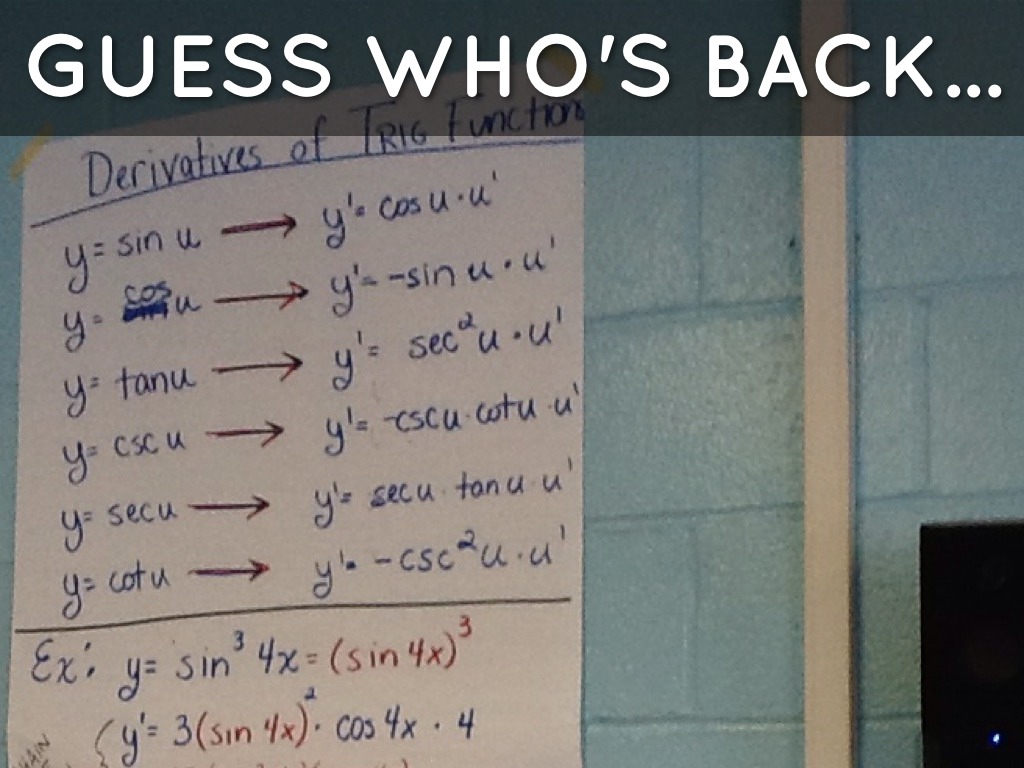 GUESS WHO'S BACK...
Derivatives of TRIG Function
y = sin u → y' = cos u · u'
y = cos u → y' = -sin u · u'
y = tan u → y' = sec²u · u'
y = csc u → y' = -csc u · cot u · u'
y = sec u → y' = sec u · tan u · u'
y = cot u → y' = -csc²u · u'
Ex: y = sin³ 4x = (sin 4x)³
y' = 3(sin 4x)² · cos 4x · 4